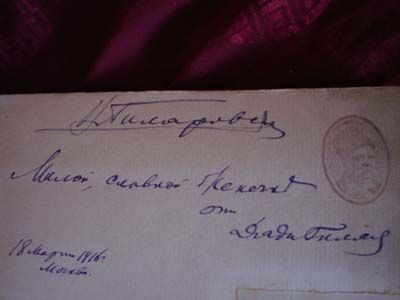 Гиляровск
Милой, славной
от
Дяди Гиляя
18 Марта 1916 г.
Москва.